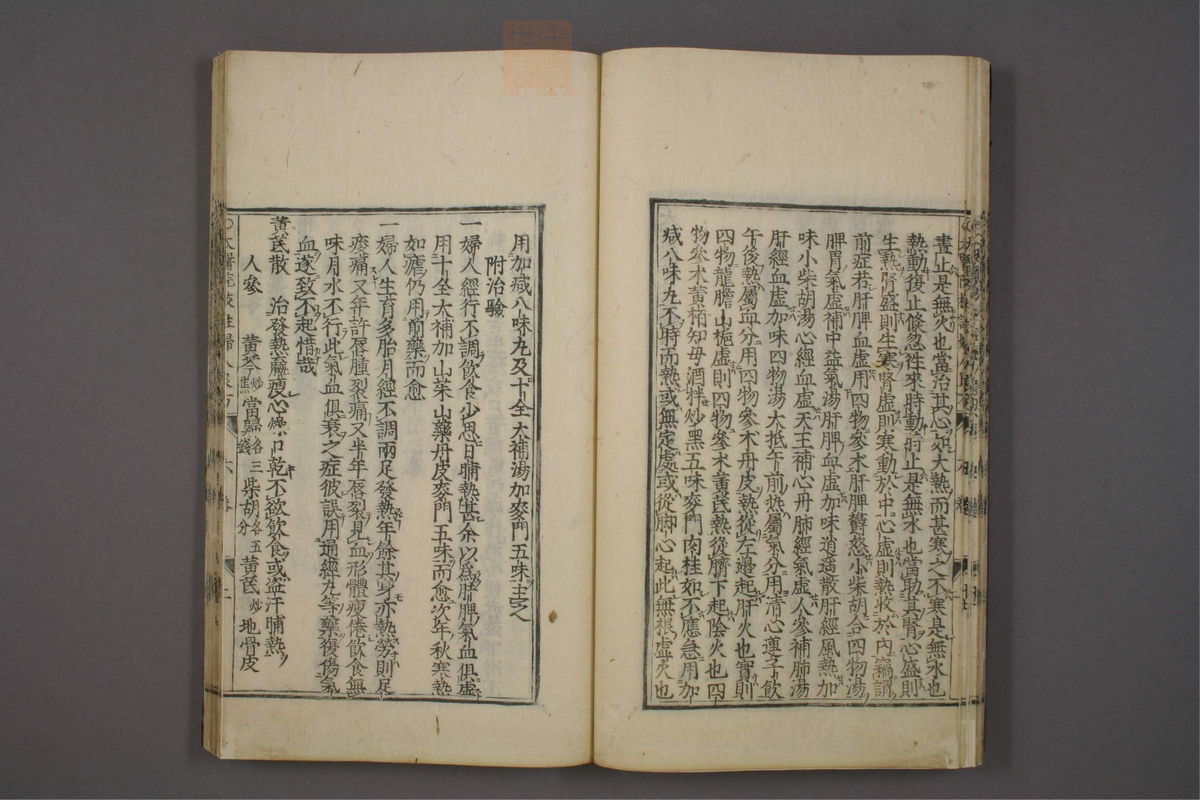 晝止是無火也當治其心如大熱而甚寒之不寒是無水也
熱動復止倏忽往來時動時止是無水也當助其腎心盛則
生熱腎盛則生寒腎虛則寒動於中心虛則熱收於內竊謂
前症若肝脾血虛用四物參朮肝脾鬱怒小柴胡合四物湯
脾胃氣虛補中益氣湯肝脾血虛加味逍遙散肝經風熱加
味小柴胡湯心經血虛天王補心丹肺經氣虛人參補肺湯
肝經血虛加味四物湯大抵午前熱屬氣分用清心蓮子飲
午後熱屬血分用四物參朮丹皮熱從左邊起肝火也實則
四物龍膽山梔虛則四物參朮黃芪熱從臍下起陰火也四
物參朮黃栢知母酒拌炒黑五味麥門肉桂如不應急用加
減八味丸不時而熱或無定處或從脚心起此無根虛火也
用加減八味丸及十全大補湯加麥門五味主之
附治驗
一婦人經行不調飲食少思日晡熱甚余以為脾氣血俱虛
用十全大補加山茱山藥丹皮麥門五味而愈次年秋寒熱
如瘧仍用前藥而愈
一婦人生育多胎月經不調兩足發熱年餘其身亦熱勞則足
痠痛又年許唇腫裂痛又半年唇裂見血形體瘦倦飲食無
味月水不行此氣血俱衰之症彼誤用通經丸等藥復傷氣
血遂致不起惜哉
黃芪散 治發熱羸瘦心燥口乾不欲飲食或盜汗晡熱
人參 黃芩炒焦 當歸各三錢 柴胡各五分 黃芪炒 地骨皮